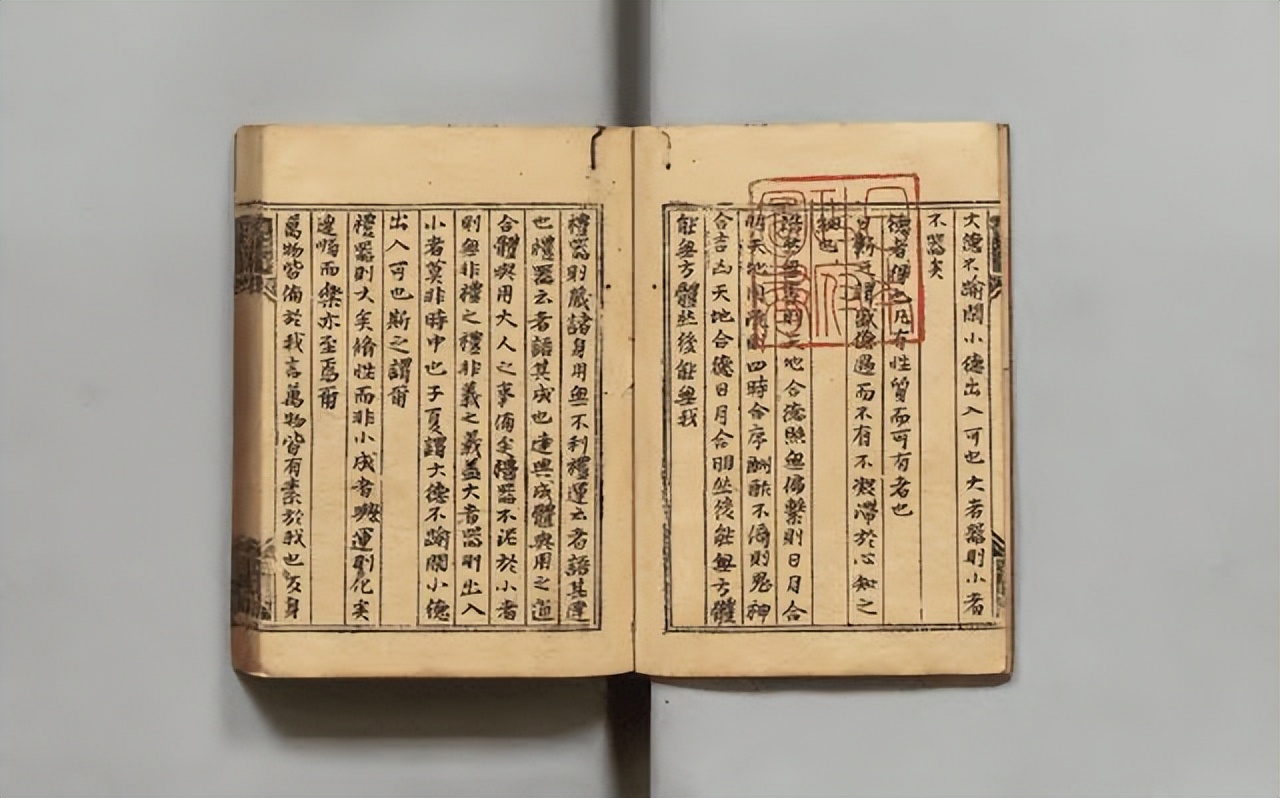 大德不踰閑小德出入可也大者器則小者
不器矣
德者得也凡有性質而可有者也
日新之謂盛德過而不有不凝滯於心知之
細也
浩然無害則天地合德照無偏繫則日月合
明天地同流則四時合序酬酢不倚則鬼神
合吉凶天地合德日月合明然後能無方體
能無方體然後能無我
禮器則藏諸身用無不利禮運云者語其達
也禮器云者語其成也達與成體與用之道
合體與用大人之事備矣禮器不泥於小者
則無非禮之禮非義之義蓋大者器則出入
小者莫非時中也子夏謂大德不踰閑小德
出入可也斯之謂爾
禮器則大矣脩性而非小成者與運則化矣
達順而樂亦至焉爾
萬物皆備於我言萬物皆有素於我也反身